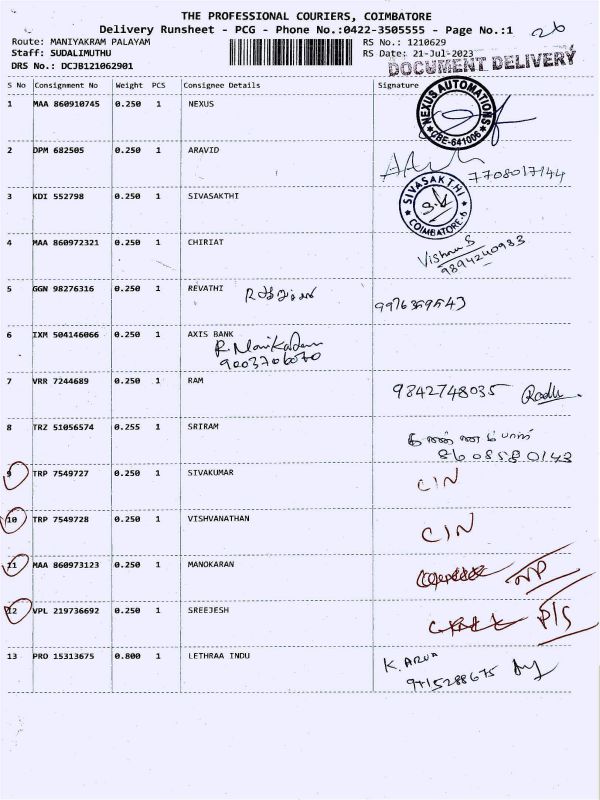 THE PROFESSIONAL COURIERS, COIMBATORE
Delivery Runsheet - PCG - Phone No.:0422-3505555 - Page No.:1
26
Route: MANIYAKRAM PALAYAM RS No.: 1210629
Staff: SUDALIMUTHU RS Date: 21-Jul-2023
DRS No.: DCJB121062901
DOCUMENT DELIVERY
S No Consignment No Weight PCS Consignee Details Signature
1 MAA 860910745 0.250 1 NEXUS
NEXUS AUTOMATIONS
CBE-641006
2 DPM 682505 0.250 1 ARAVID
7708017144
3 KDI 552798 0.250 1 SIVASAKTHI
SIVASAKTHI
COIMBATORE-6
4 MAA 860972321 0.250 1 CHIRIAT
Vishnu S
9894240933
5 GGN 98276316 0.250 1 REVATHI
9976359543
6 IXM 504146066 0.250 1 AXIS BANK
R. Manikadan
9003706070
7 VRR 7244689 0.250 1 RAM 9842748035 Radha
8 TRZ 51056574 0.255 1 SRIRAM
8608580143
9 TRP 7549727 0.250 1 SIVAKUMAR CIN
10 TRP 7549728 0.250 1 VISHVANATHAN CIN
11 MAA 860973123 0.250 1 MANOKARAN NP
12 VPL 219736692 0.250 1 SREEJESH P/S
13 PRO 15313675 0.800 1 LETHRAA INDU
K. ARUN
9715288675